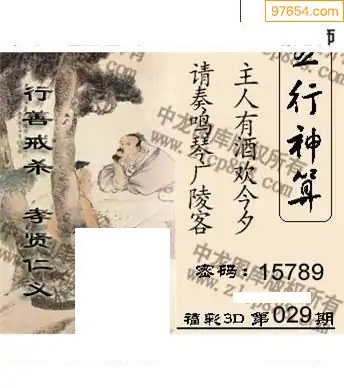 97654.com
五行神算
主人有酒欢今夕
请奏鸣琴广陵客
行善戒杀 孝贤仁义
密码：15789
福彩3D 第029期
中龙图库版权所有